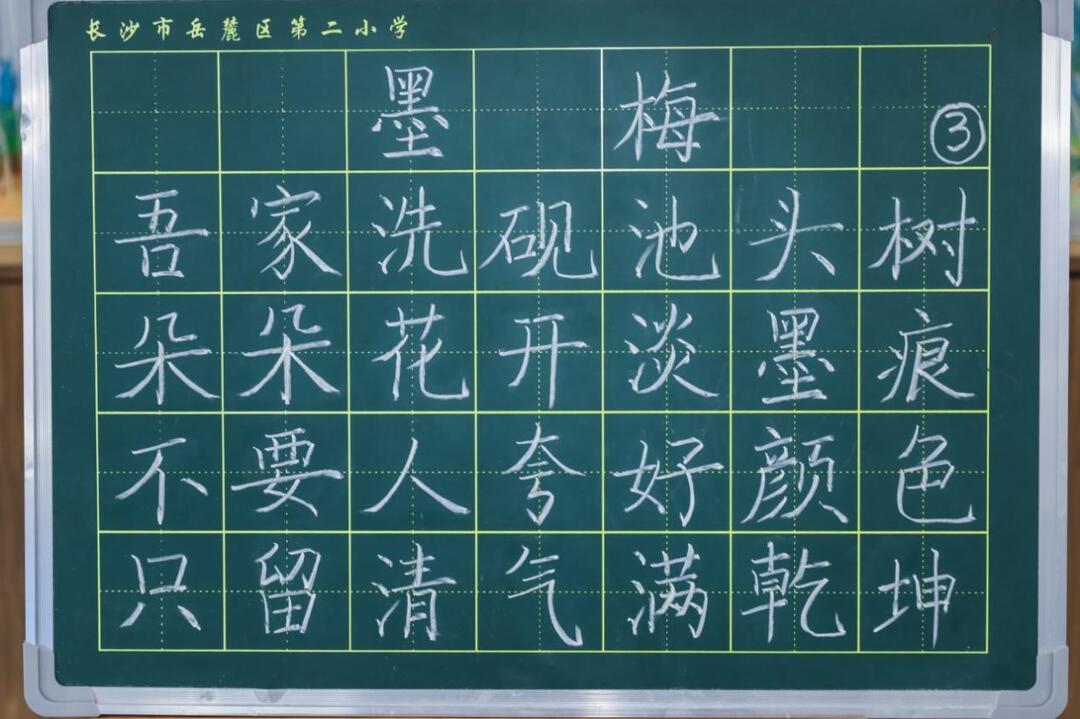 长沙市岳麓区第二小学
墨梅
③
吾家洗砚池头树
朵朵花开淡墨痕
不要人夸好颜色
只留清气满乾坤